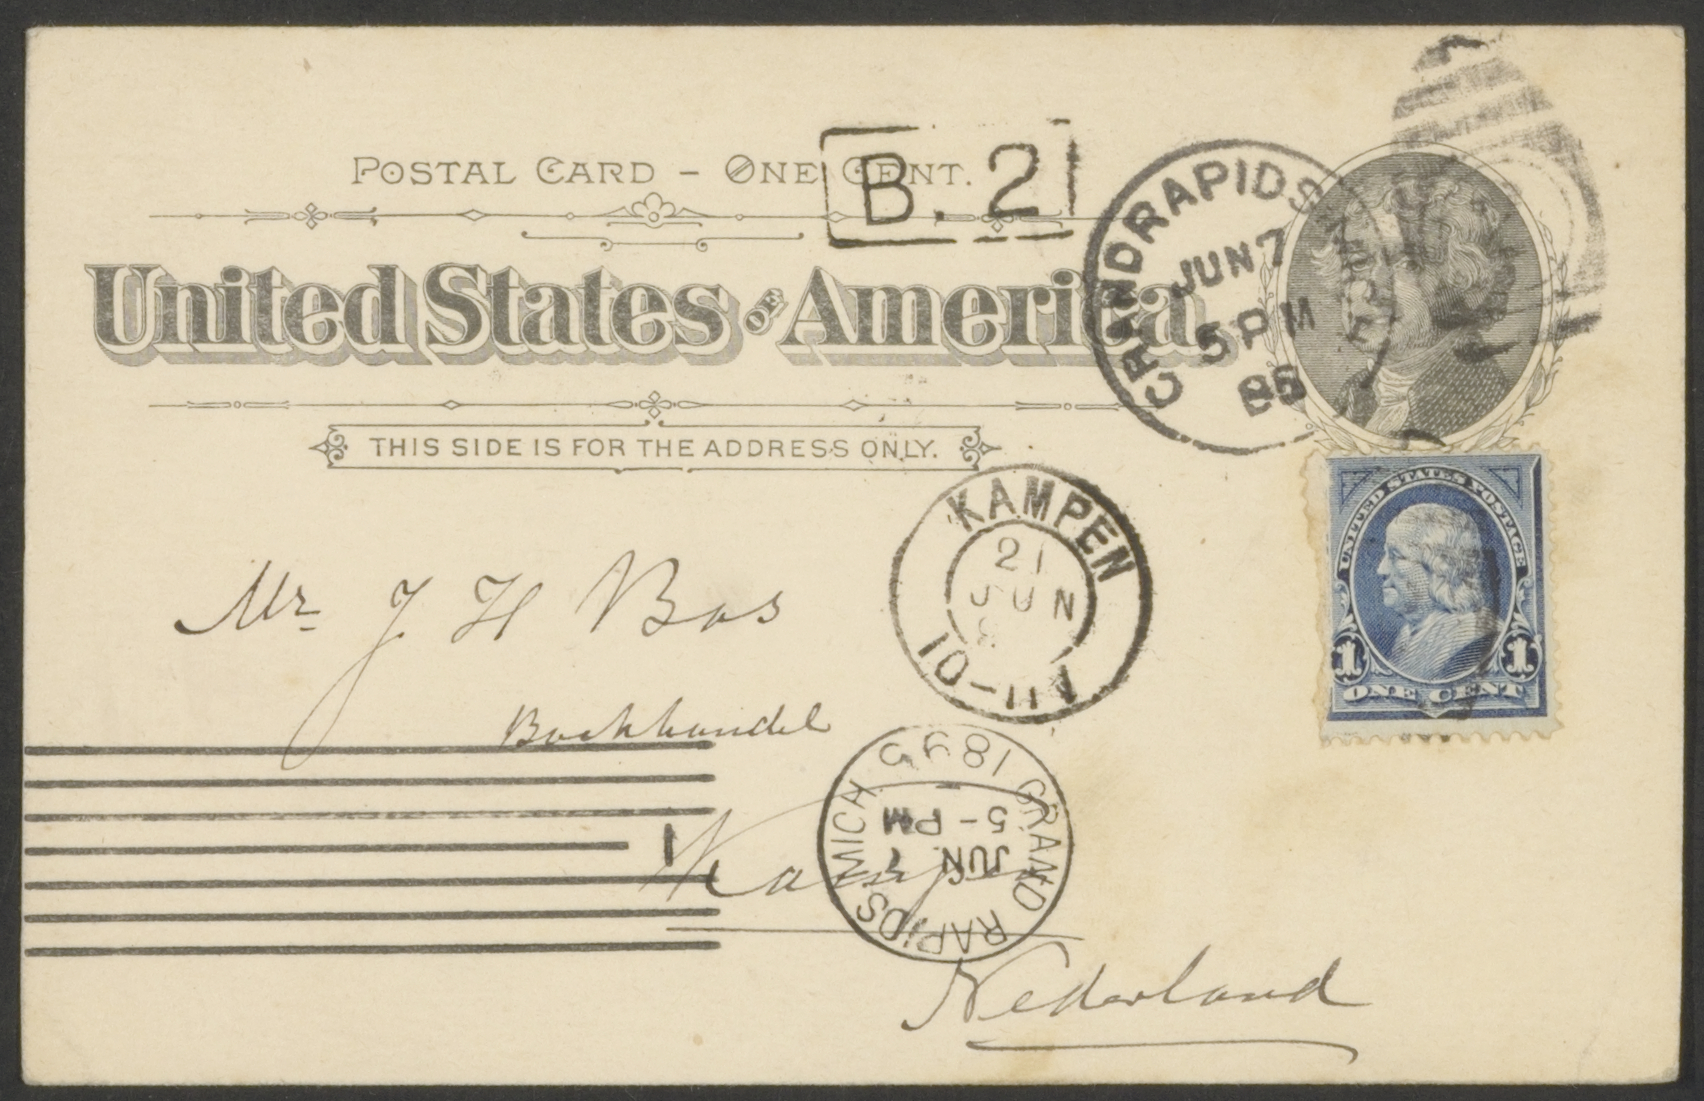 POSTAL CARD - ONE CENT.
B. 2
United States OF America
THIS SIDE IS FOR THE ADDRESS ONLY.
GRAND RAPIDS MICH
JUN 7
5 PM
UNITED STATES POSTAGE
1 1
ONE CENT
KAMPEN
21
JUN
10-11
Mr J H Bos
Boekhandel
1
GRAND RAPIDS MICH 1895
JUN 7
5 - PM
Nederland